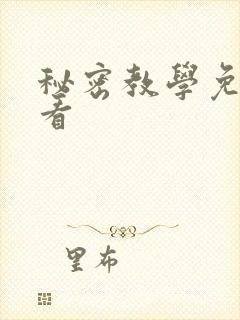 秘密教學免
看
里布